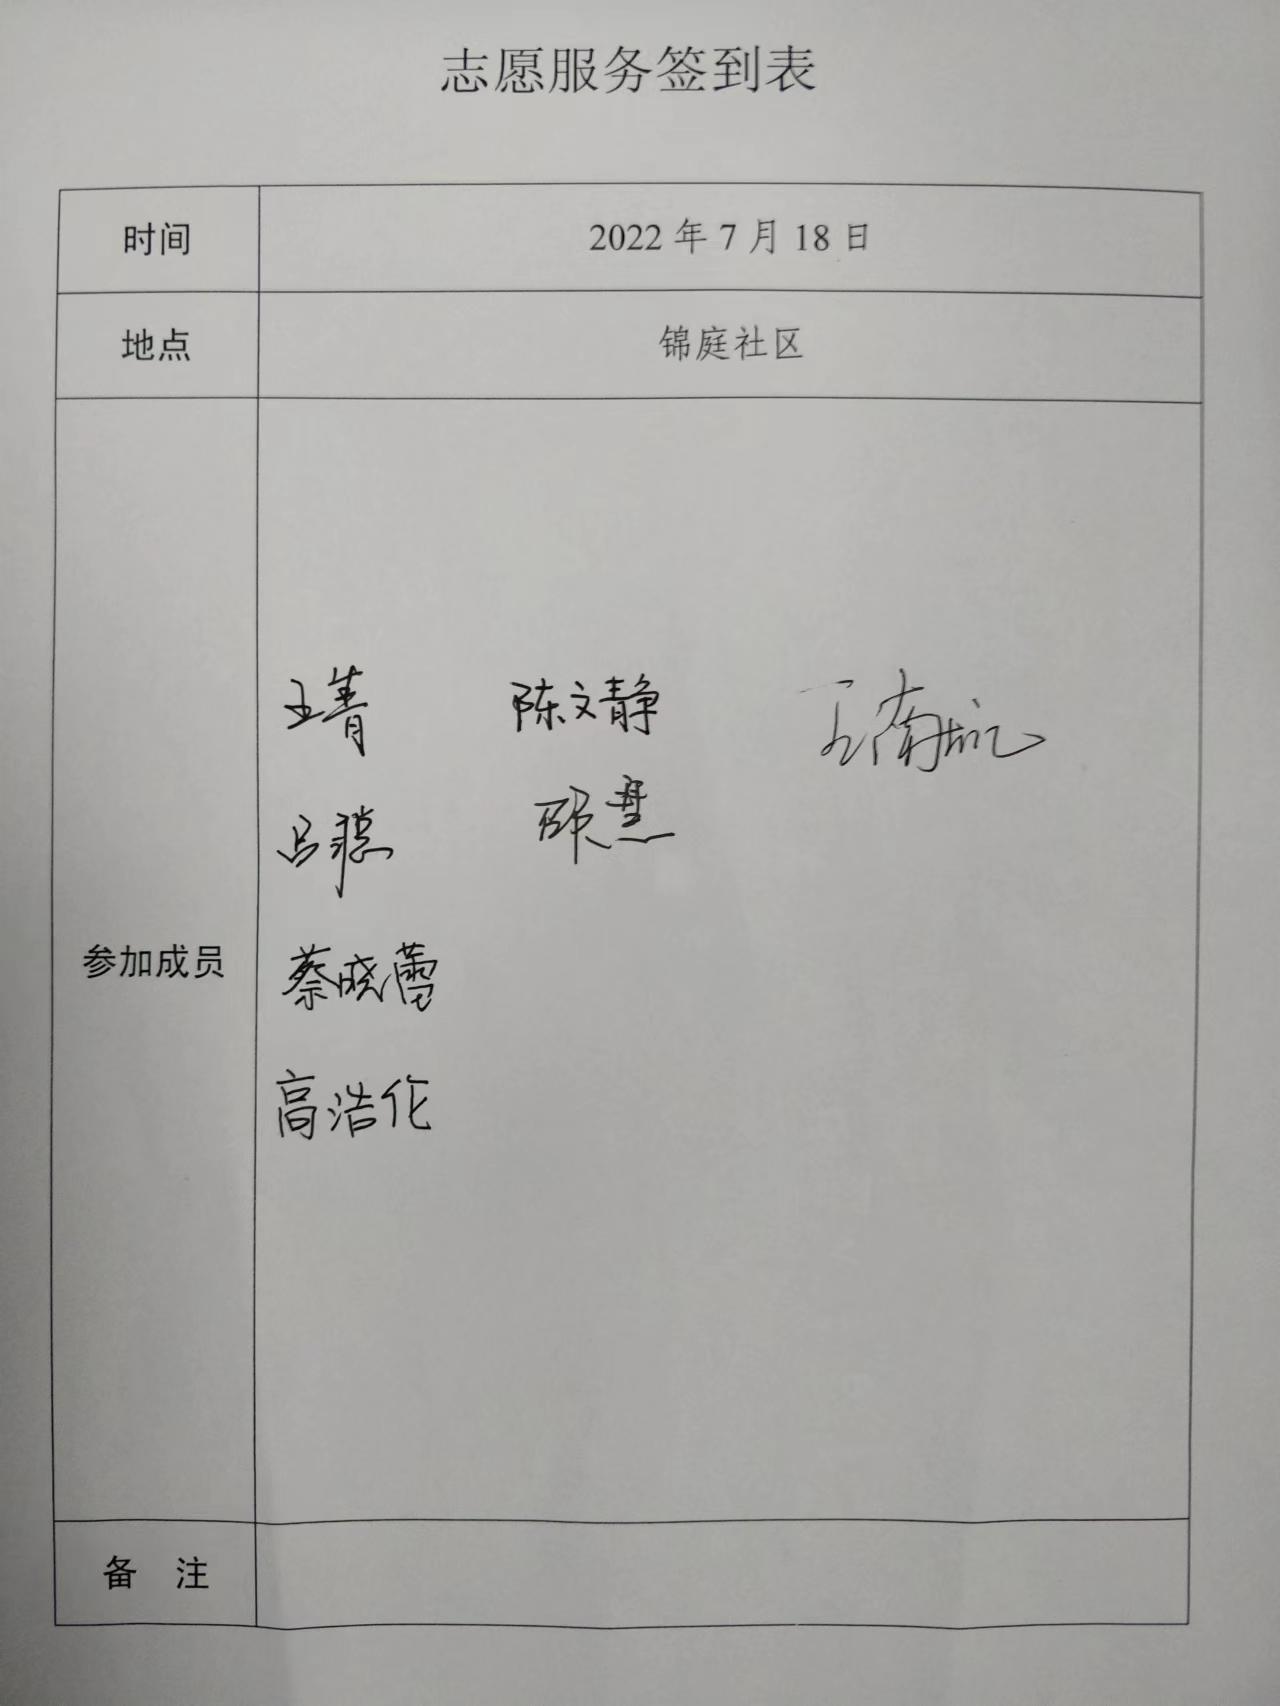 志愿服务签到表
时间
2022年7月18日
地点
锦庭社区
参加成员
王青 陈文静 王南
吕聪 顾慧
蔡晓蕾
高浩伦
备 注